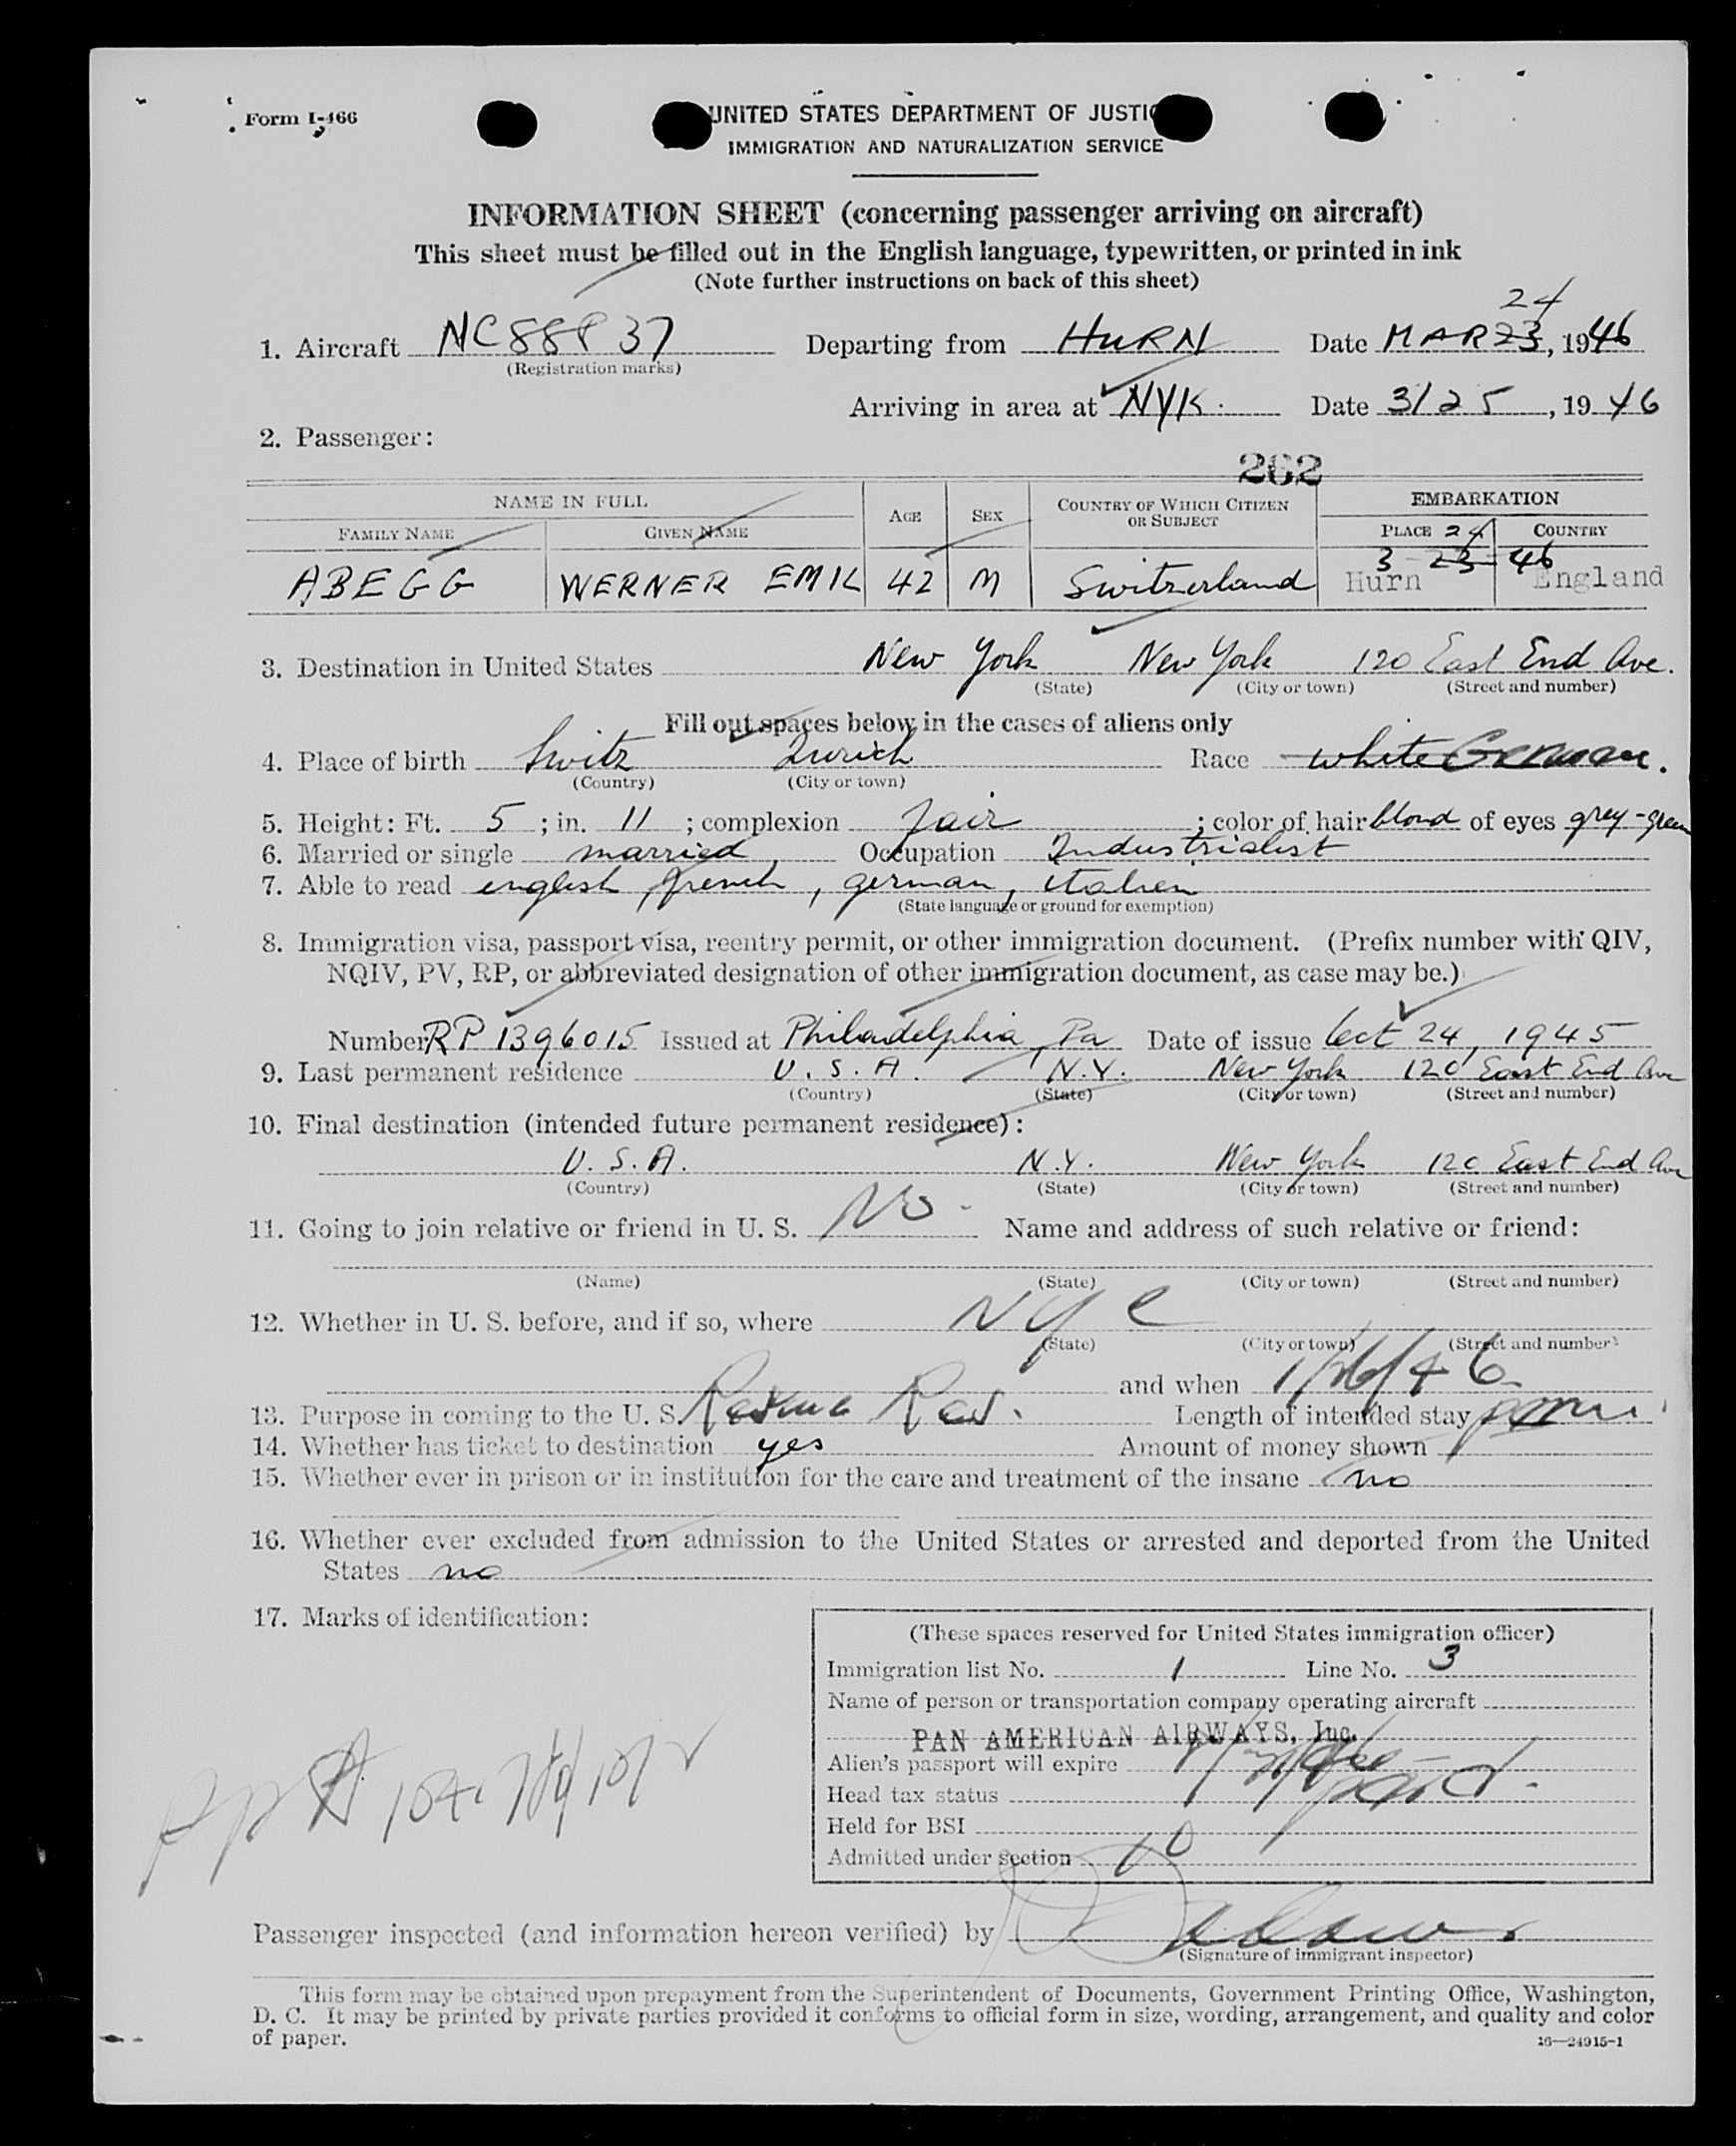 Form I-466
UNITED STATES DEPARTMENT OF JUSTIC
IMMIGRATION AND NATURALIZATION SERVICE
INFORMATION SHEET (concerning passenger arriving on aircraft)
This sheet must be filled out in the English language, typewritten, or printed in ink
(Note further instructions on back of this sheet)
24
1. Aircraft NC88837 Departing from HURN Date MAR 23, 1946
(Registration marks)
Arriving in area at NYK. Date 3/25, 1946
2. Passenger:
262
NAME IN FULL AGE SEX COUNTRY OF WHICH CITIZEN OR SUBJECT EMBARKATION
FAMILY NAME GIVEN NAME PLACE 24 COUNTRY
3 23 46
ABEGG WERNER EMIL 42 M Switzerland Hurn England
3. Destination in United States New York New York 120 East End Ave.
(State) (City or town) (Street and number)
Fill out spaces below in the cases of aliens only
4. Place of birth Switz Zurich Race white German.
(Country) (City or town)
5. Height: Ft. 5 ; in. 11 ; complexion fair ; color of hair blond of eyes grey-green
6. Married or single married Occupation Industrialist
7. Able to read english, french, german, italien
(State language or ground for exemption)
8. Immigration visa, passport visa, reentry permit, or other immigration document. (Prefix number with QIV,
NQIV, PV, RP, or abbreviated designation of other immigration document, as case may be.)
Number RP 1396015 Issued at Philadelphia, Pa Date of issue Oct 24, 1945
9. Last permanent residence U.S.A. N.Y. New York 120 East End Ave
(Country) (State) (City or town) (Street and number)
10. Final destination (intended future permanent residence):
U.S.A. N.Y. New York 120 East End Ave
(Country) (State) (City or town) (Street and number)
11. Going to join relative or friend in U. S. No - Name and address of such relative or friend:
(Name) (State) (City or town) (Street and number)
12. Whether in U. S. before, and if so, where NYC
(State) (City or town) (Street and number)
and when 1/26/46
13. Purpose in coming to the U. S. Res. Length of intended stay perm
14. Whether has ticket to destination yes Amount of money shown
15. Whether ever in prison or in institution for the care and treatment of the insane no
16. Whether ever excluded from admission to the United States or arrested and deported from the United
States no
17. Marks of identification:
(These spaces reserved for United States immigration officer)
Immigration list No. 1 Line No. 3
Name of person or transportation company operating aircraft
PAN AMERICAN AIRWAYS, Inc.
Alien's passport will expire
Head tax status paid.
Held for BSI
Admitted under section 10
Passenger inspected (and information hereon verified) by
(Signature of immigrant inspector)
This form may be obtained upon prepayment from the Superintendent of Documents, Government Printing Office, Washington,
D. C. It may be printed by private parties provided it conforms to official form in size, wording, arrangement, and quality and color
of paper.
16—24915-1